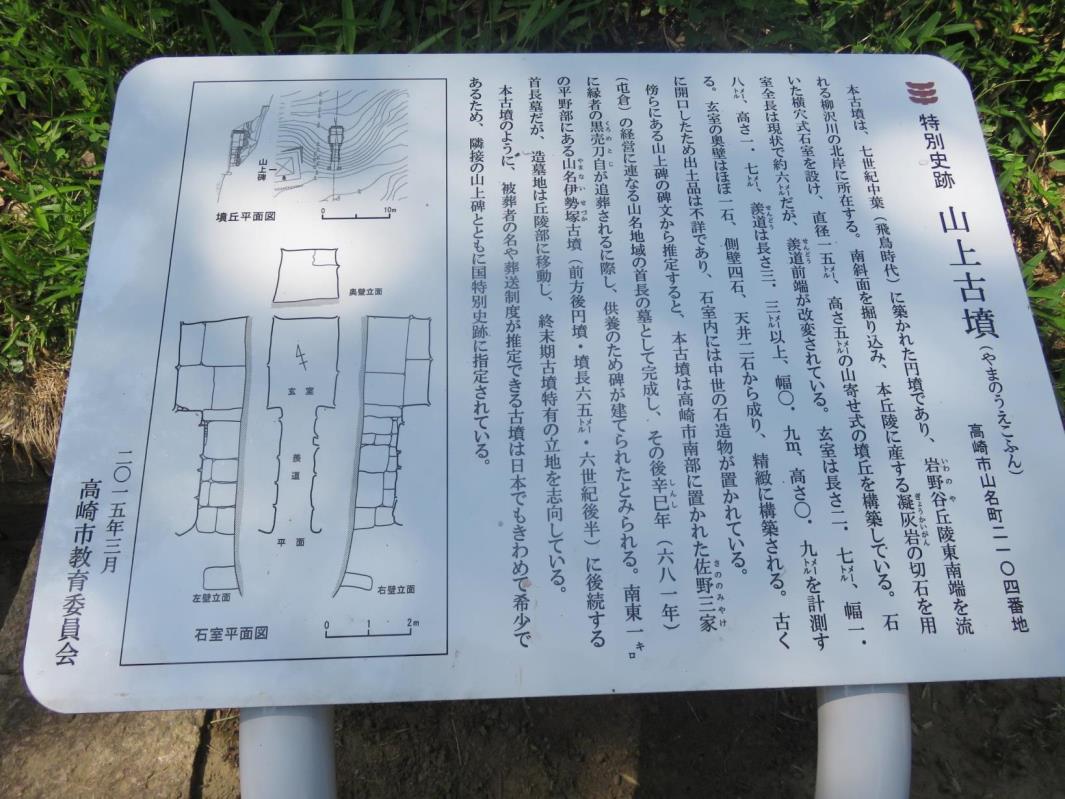 特別史跡 山上古墳(やまのうえこふん)
高崎市山名町二一〇四番地
本古墳は、七世紀中葉(飛鳥時代)に築かれた円墳であり、岩野谷丘陵東南端を流
れる柳沢川の北岸に所在する。南斜面を掘り込み、本丘陵に産する凝灰岩の切石を用
いた横穴式石室を設け、直径一五メートル、高さ五メートルの山寄せ式の墳丘を構築している。石
室全長は現状で約六メートルだが、羨道前端が改変されている。玄室は長さ二・七メートル、幅一・
八メートル、高さ一・七メートル、羨道は長さ三・三メートル以上、幅〇・九m、高さ〇・九メートルを計測す
る。玄室の奥壁はほぼ一石、側壁四石、天井二石から成り、精緻に構築される。古く
に開口したため出土品は不詳であり、石室内には中世の石造物が置かれている。
傍らにある山上碑の碑文から推定すると、本古墳は高崎市南部に置かれた佐野三家
(屯倉)の経営に連なる山名地域の首長の墓として完成し、その後辛巳年(六八一年)
に縁者の黒売刀自が追葬されるに際し、供養のため碑が建てられたとみられる。南東一キロ
の平野部にある山名伊勢塚古墳(前方後円墳・墳長六五メートル・六世紀後半)に後続する
首長墓だが、造墓地は丘陵部に移動し、終末期古墳特有の立地を志向している。
本古墳のように、被葬者の名や葬送制度が推定できる古墳は日本でもきわめて希少で
あるため、隣接の山上碑とともに国特別史跡に指定されている。
いわのや
ぎょうかいがん
せんどう
せんどう
さののみやけ
しんし
くろめのとじ
やまないせづか
山上碑
墳丘平面図
0 10m
奥壁立面
玄室
羨道
平面
左壁立面
右壁立面
石室平面図
0 1 2m
二〇一五年三月
高崎市教育委員会